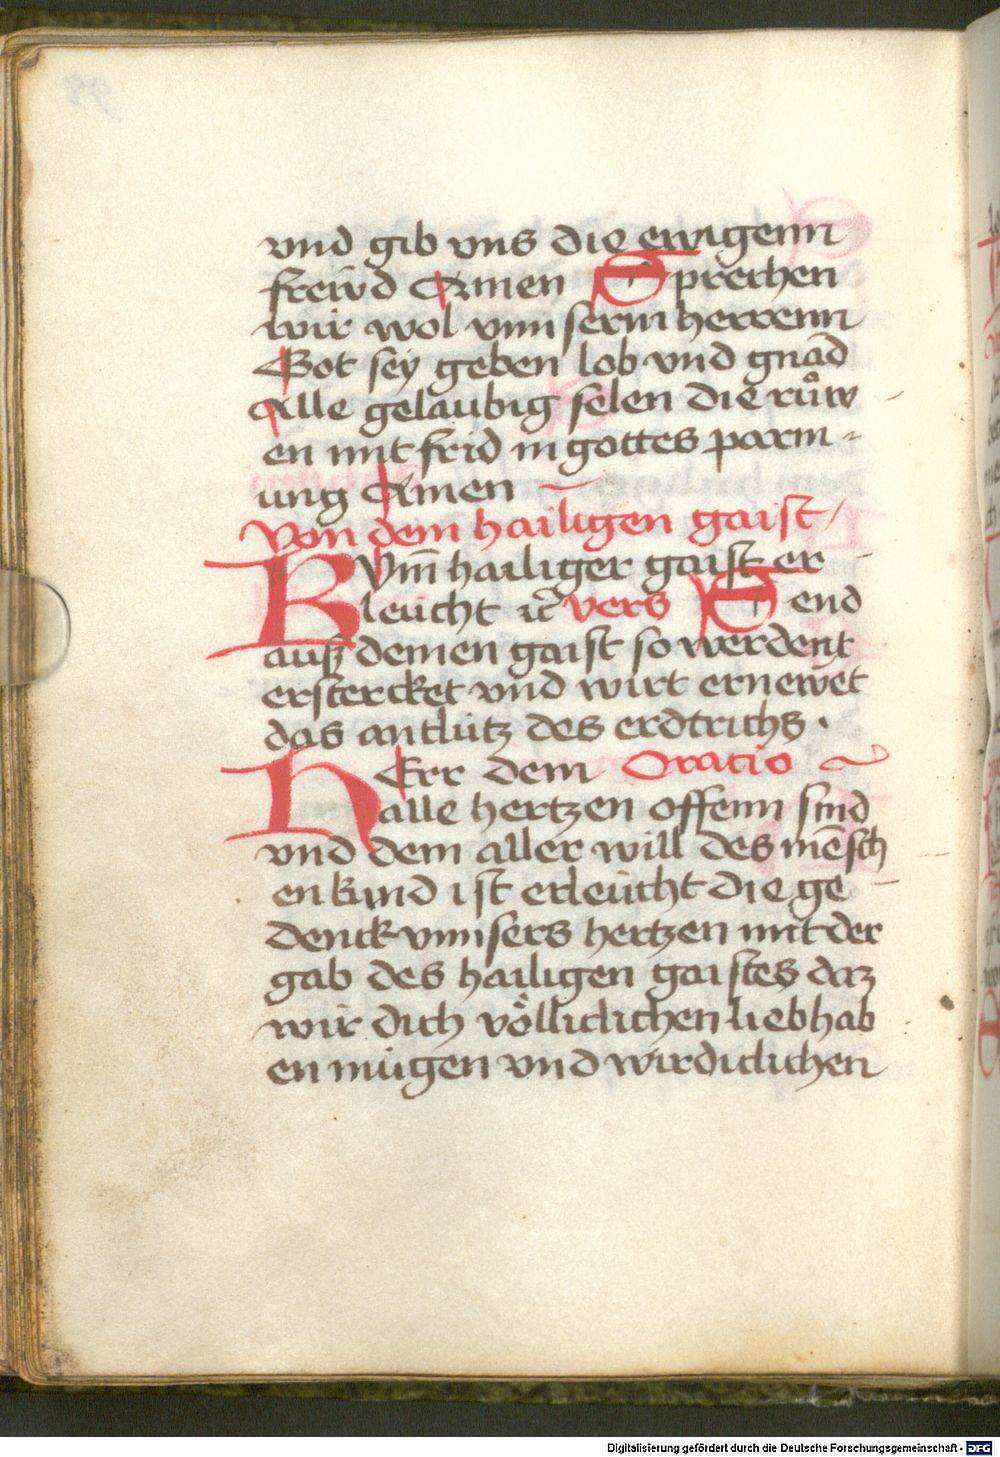 vnd gib vns die ewigenn
freẅd Amen Sprechen
wir wol vnnserm herrenn
Got sey geben lob vnd gnad
Alle gelaubig selen die růw
en mit frid in gottes parm-
ung Amen
Von dem hailigen gaist
Kum̄ hailiger gaist er
leücht ⁊c̄ vers Send
auß deinen gaist so werdent
erstercket vnd wirt ernewet
das antlütz des erdtrichs.
HErr dem Oratio
alle hertzen offenn sind
vnd dem aller will des mēsch
en kund ist erleücht die ge
denck vnnsers hertzen mit der
gab des hailigen gaistes daz
wir dich völliclichen liebhab
en mügen vnd wirdiclichen
Digitalisierung gefördert durch die Deutsche Forschungsgemeinschaft - DFG